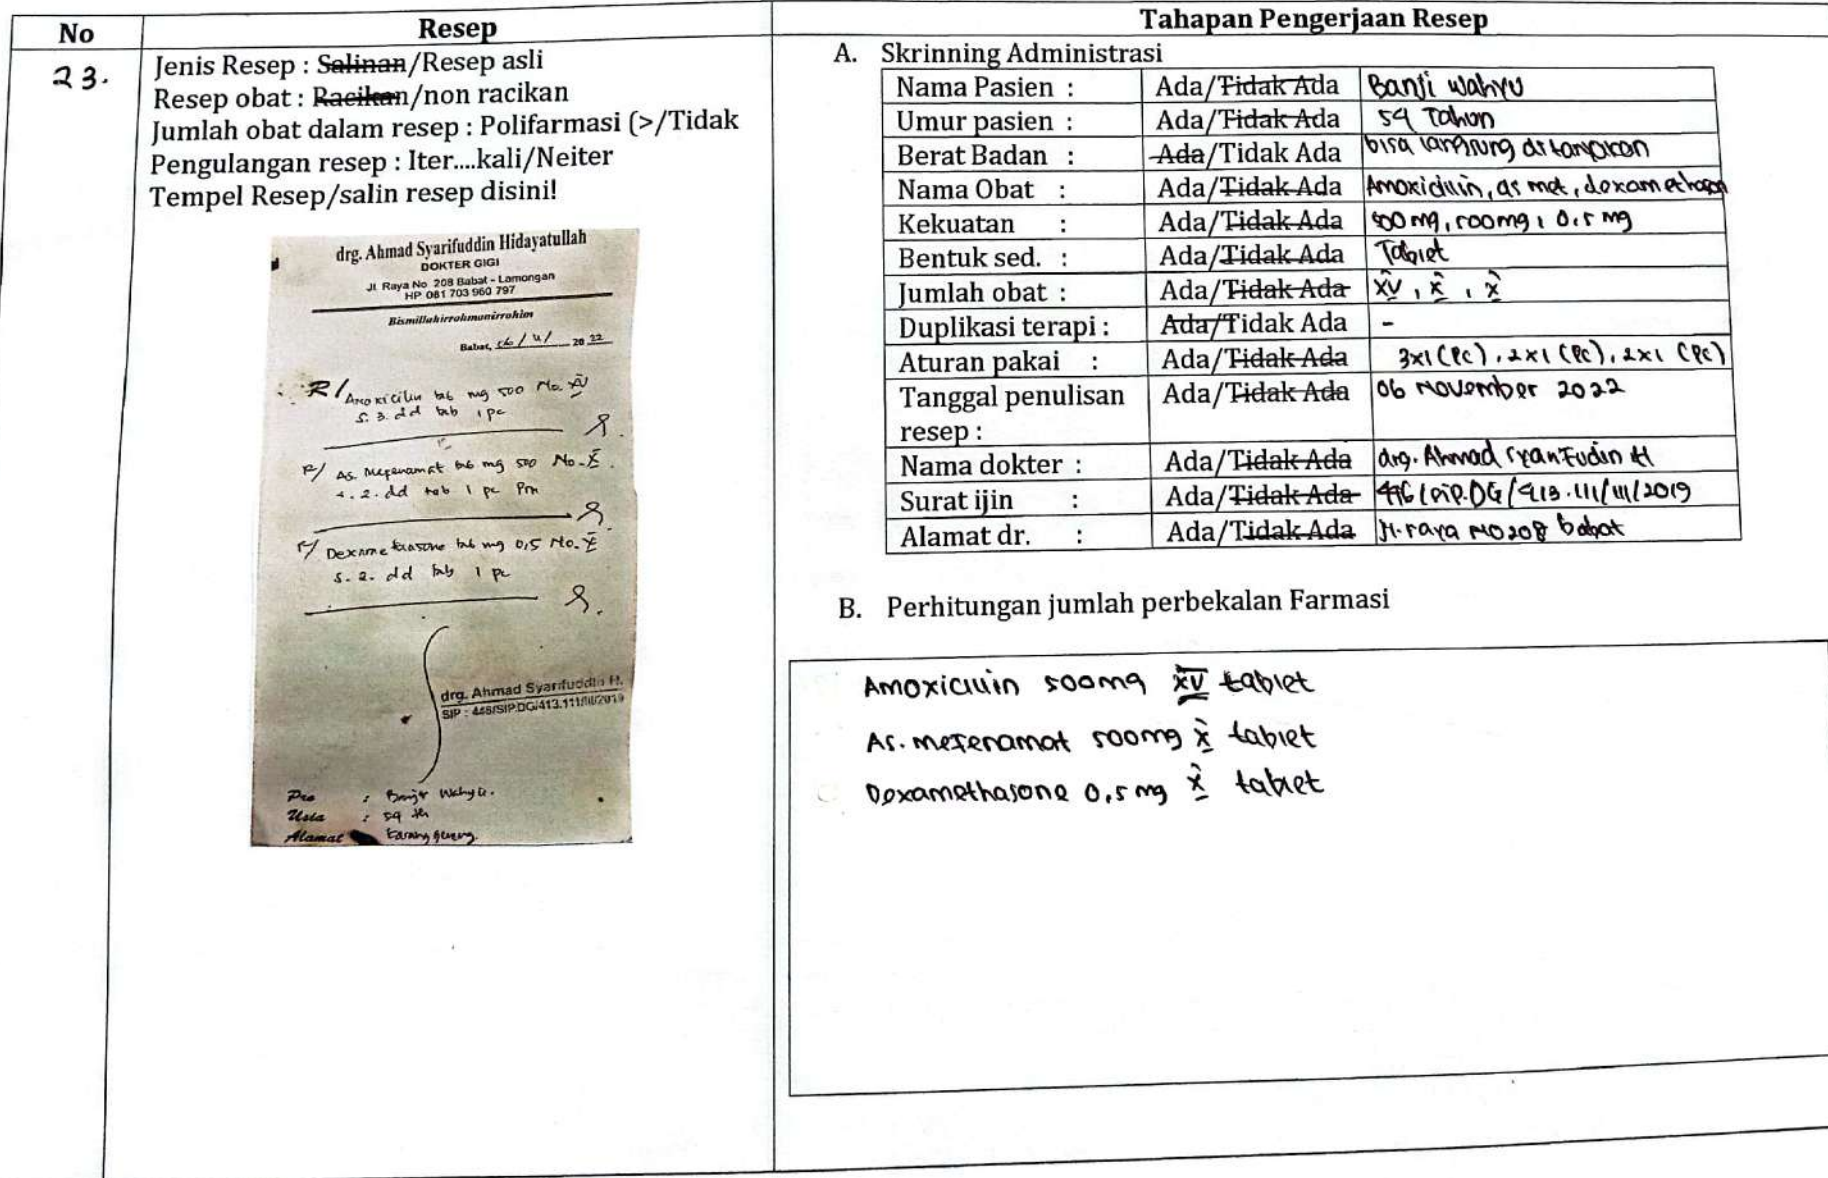 No
Resep
Tahapan Pengerjaan Resep
23.
Jenis Resep : Salinan/Resep asli
Resep obat : Racikan/non racikan
Jumlah obat dalam resep : Polifarmasi (>/Tidak
Pengulangan resep : Iter....kali/Neiter
Tempel Resep/salin resep disini!
drg. Ahmad Syarifuddin Hidayatullah
DOKTER GIGI
Jl. Raya No. 208 Babat - Lamongan
HP 081 703 960 797
Bismillahirrohmanirrohim
Babat, 06/11/ 20 22
R/ Amoxicilin tab mg 500 No. XV
S. 3. dd tab 1 pc
R/ As. Mefenamat tab mg 500 No. X
s. 2. dd tab 1 pc Prn
R/ Dexamethasone tab mg 0,5 No. X
S. 2. dd tab 1 pc
drg. Ahmad Syarifuddin H.
SIP : 448/SIP.DG/413.111/III/2019
Pro : Banji Wahyu.
Usia : 59 th
Alamat Karanggeneng.
A. Skrinning Administrasi
Nama Pasien : Ada/Tidak Ada Banji Wahyu
Umur pasien : Ada/Tidak Ada 59 Tahun
Berat Badan : Ada/Tidak Ada bisa langsung ditanyakan
Nama Obat : Ada/Tidak Ada Amoxicillin, as mef, dexamethason
Kekuatan : Ada/Tidak Ada 500 mg, 500mg, 0,5 mg
Bentuk sed. : Ada/Tidak Ada Tablet
Jumlah obat : Ada/Tidak Ada XV, X, X
Duplikasi terapi : Ada/Tidak Ada -
Aturan pakai : Ada/Tidak Ada 3x1 (pc), 2x1 (pc), 2x1 (pc)
Tanggal penulisan Ada/Tidak Ada 06 November 2022
resep :
Nama dokter : Ada/Tidak Ada drg. Ahmad Syarifudin H
Surat ijin : Ada/Tidak Ada 446/SIP.DG/413.111/III/2019
Alamat dr. : Ada/Tidak Ada Jl. raya No 208 babat
B. Perhitungan jumlah perbekalan Farmasi
Amoxicillin 500mg XV tablet
As. mefenamat 500mg X tablet
Dexamethasone 0,5 mg X tablet